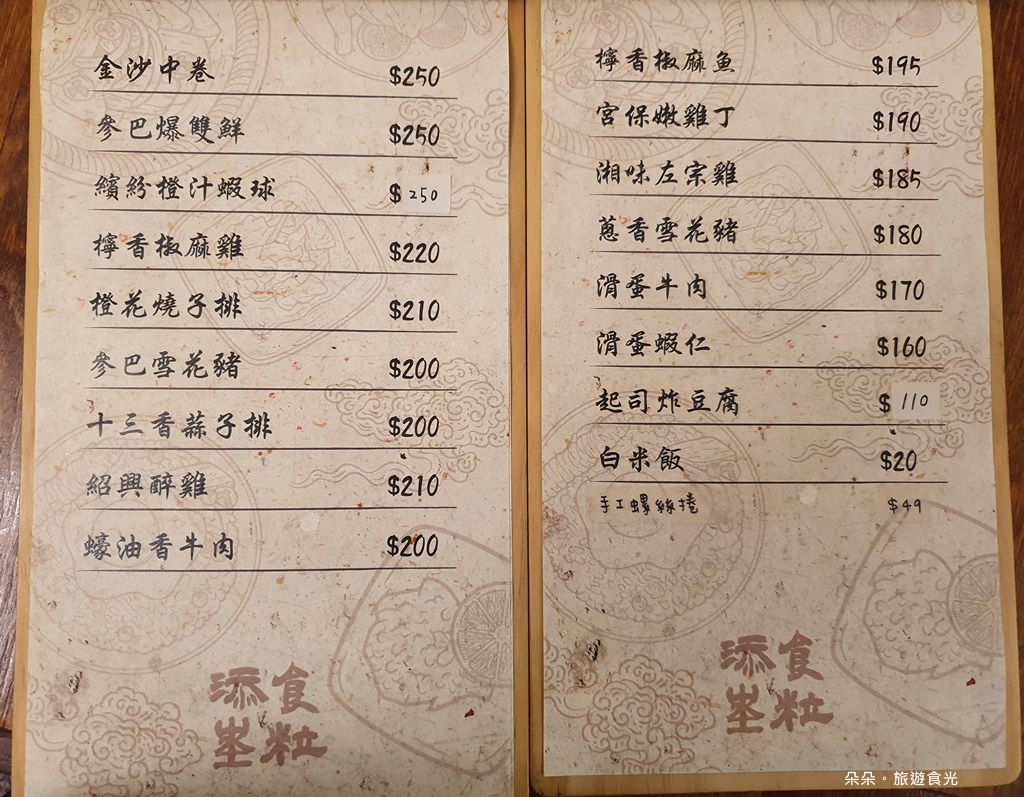 金沙中卷 $250
參巴爆雙鮮 $250
繽紛橙汁蝦球 $250
檸香椒麻雞 $220
橙花燒子排 $210
參巴雪花豬 $200
十三香蒜子排 $200
紹興醉雞 $210
蠔油香牛肉 $200
添食
埊粒
檸香椒麻魚 $195
宮保嫩雞丁 $190
湘味左宗雞 $185
蔥香雪花豬 $180
滑蛋牛肉 $170
滑蛋蝦仁 $160
起司炸豆腐 $110
白米飯 $20
手工螺絲捲 $49
添食
埊粒
朵朵。旅遊食光